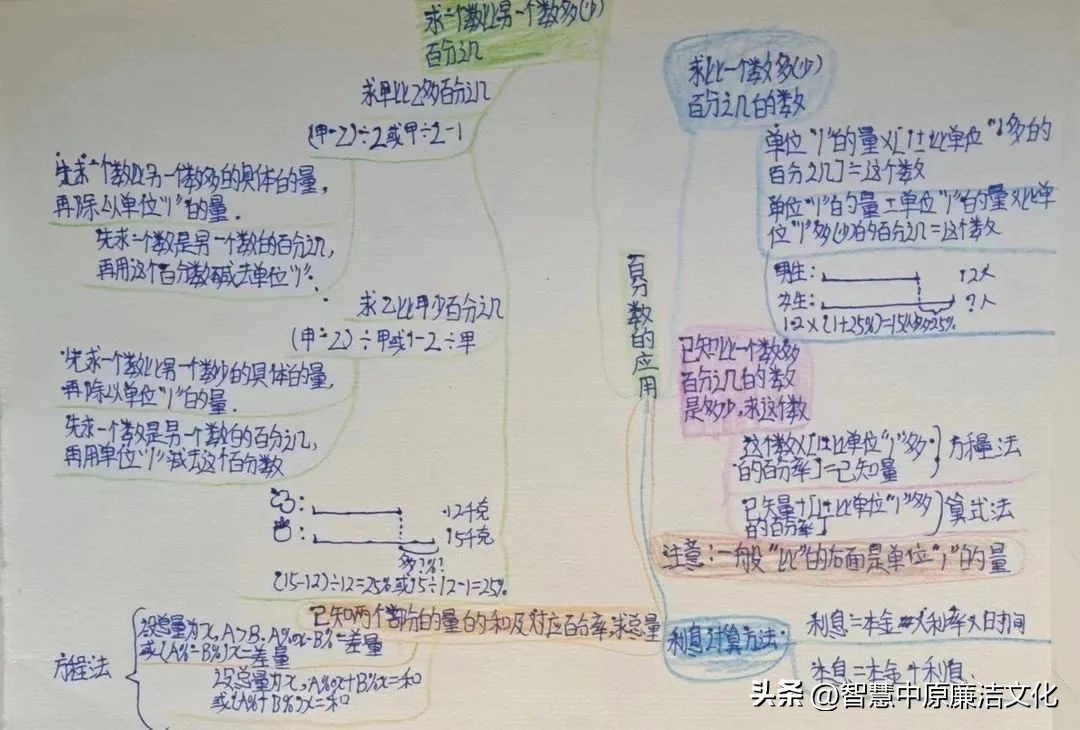 求一个数比另一个数多(少)
百分之几
求甲比乙多百分之几
(甲-乙)÷乙或甲÷乙-1
先求一个数比另一个数多的具体的量,
再除以单位"1"的量.
先求一个数是另一个数的百分之几,
再用这个百分数减去单位"1".
求乙比甲少百分之几
(甲-乙)÷甲或1-乙÷甲
先求一个数比另一个数少的具体的量,
再除以单位"1"的量.
先求一个数是另一个数的百分之几,
再用单位"1"减去这个百分数
12千克
15千克
多?%?
(15-12)÷12=25%或15÷12-1=25%
已知两个部分的量的和及对应百分率,求总量
方程法
设总量为x,A>B.A%x-B%=差量
或(A%-B%)x=差量
设总量为x,A%x+B%x=和
或(A%+B%)x=和
百分数的应用
求比一个数多(少)
百分之几的数
单位"1"的量×[1±比单位"1"多的
百分之几]=这个数
单位"1"的量±单位"1"的量×比单
位"1"多(少)的百分之几=这个数
男生:
12人
女生:
?人
12×(1+25%)=15(人)
多25%
已知比一个数多
百分之几的数
是多少,求这个数
这个数×[1±比单位"1"多
的百分率]=已知量
方程法
已知量÷[1±比单位"1"多
的百分率]
算式法
注意:一般"比"的后面是单位"1"的量
利息计算方法
利息=本金×利率×时间
本息=本金+利息
头条 @智慧中原廉洁文化